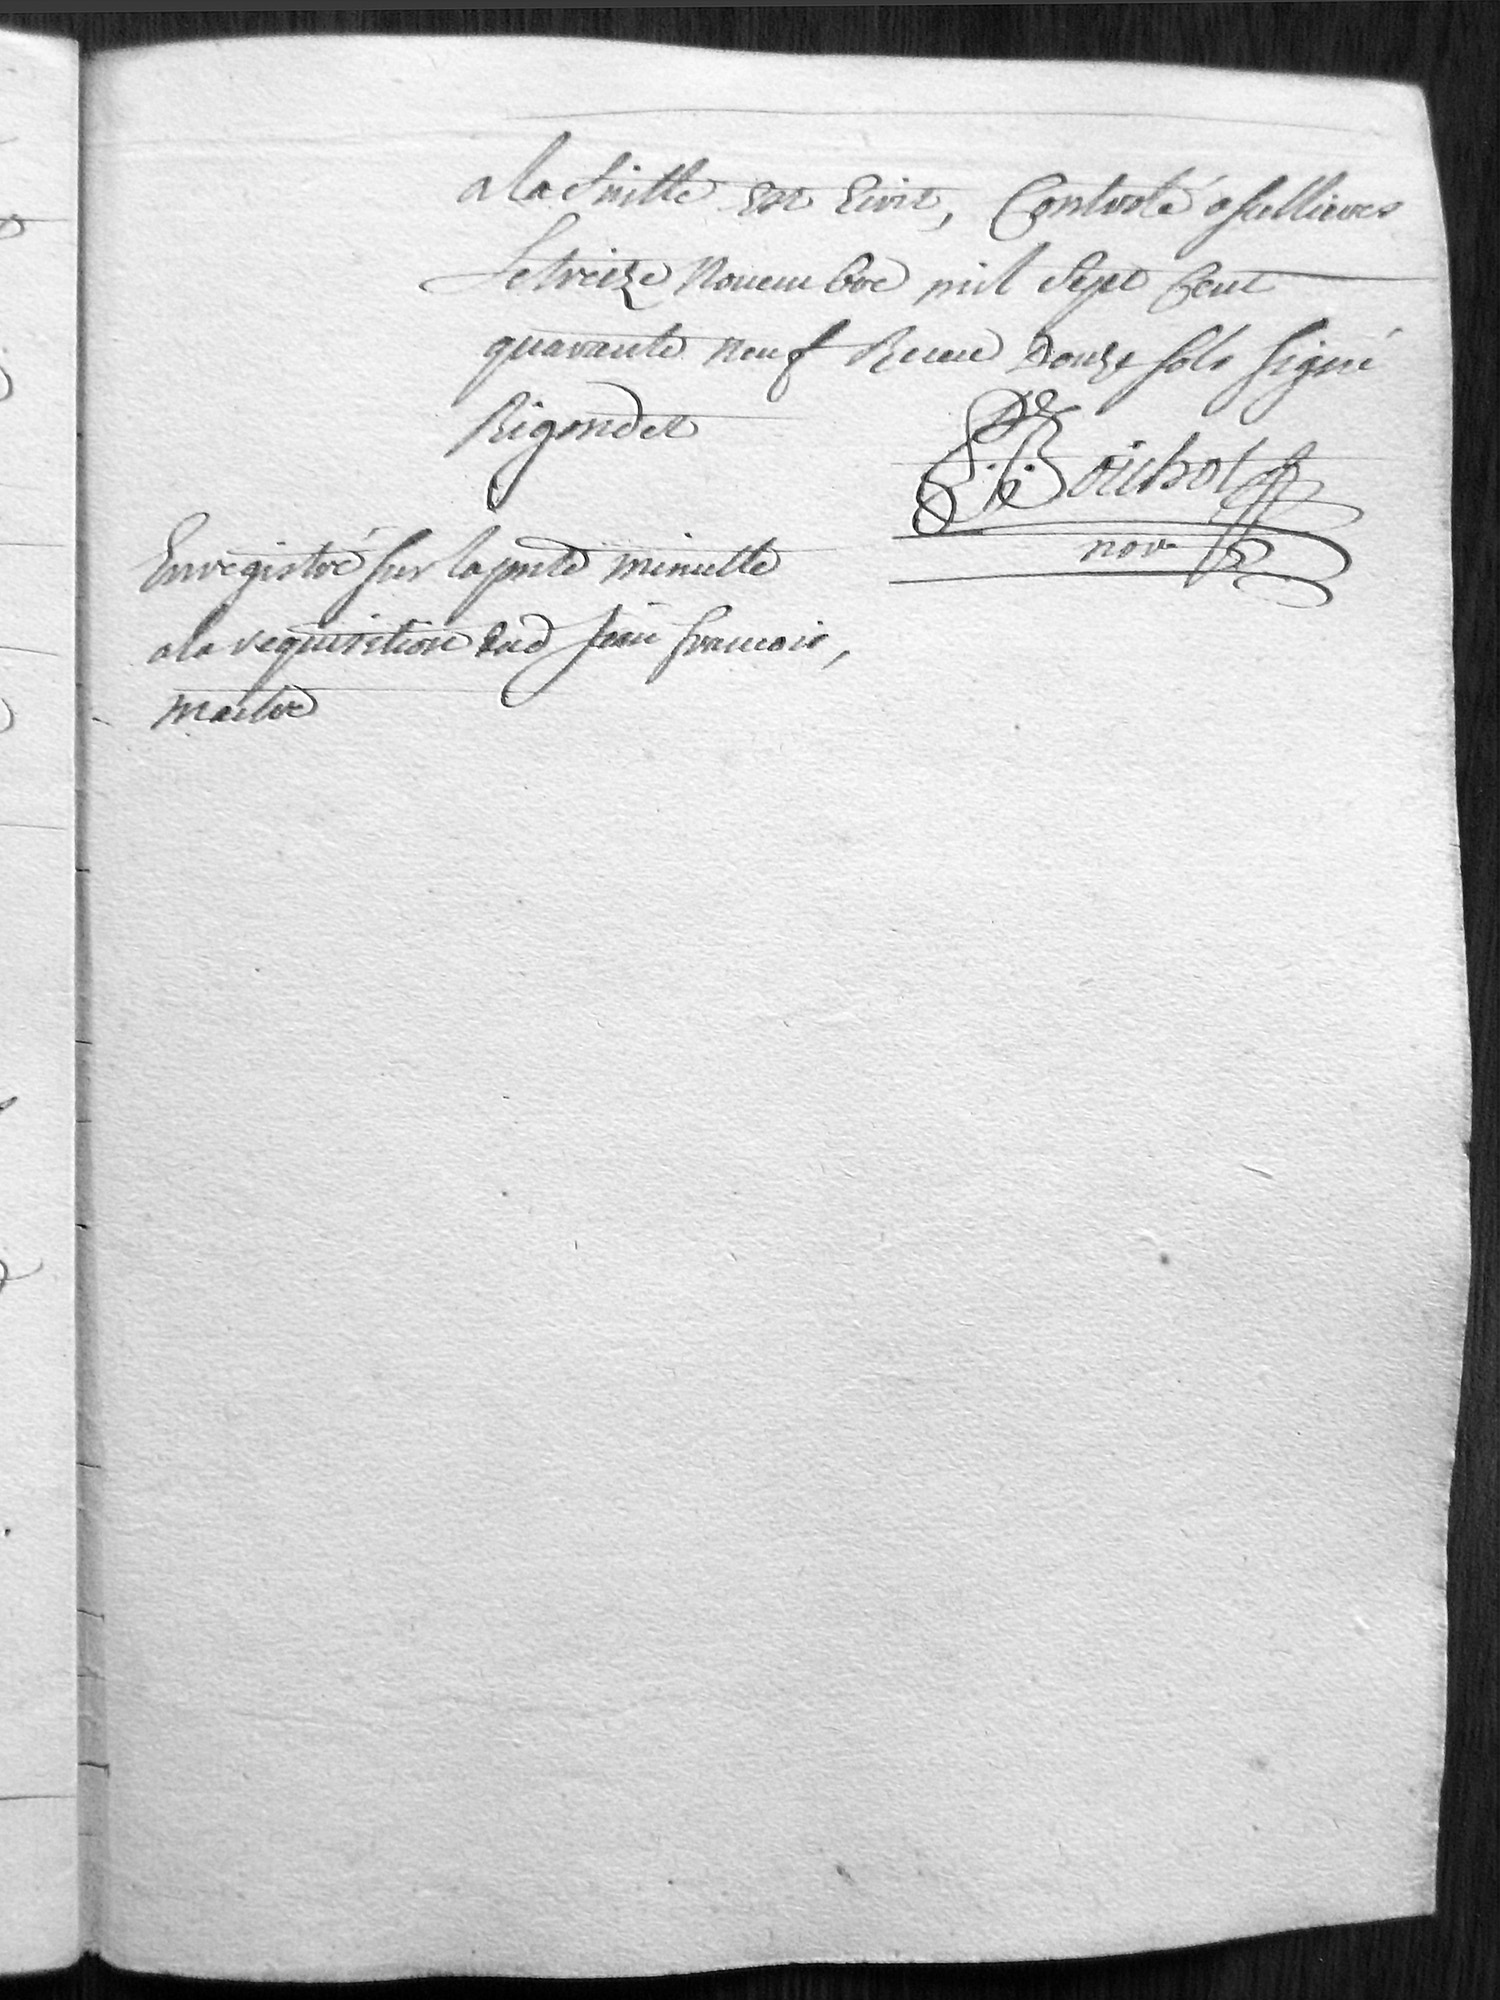 a la Suitte Est Ecrit, Controlé a sellieres
Le treize Nouembre mil Sept Cent
quarante neuf Receu Douze sols signé
Rigondet
Bouchot
nore
Enregistré sur la pnte minutte
a la requisition dud Jean francois,
maitre